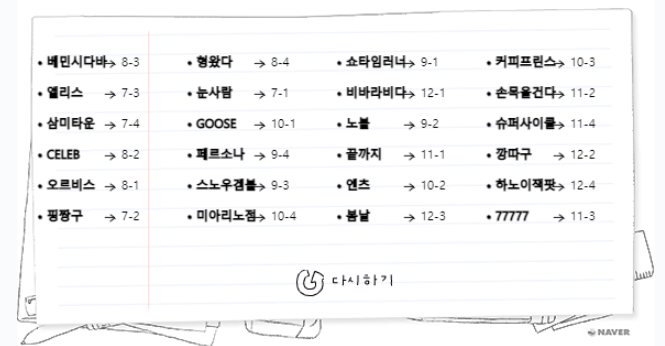 • 베민시다바→ 8-3 • 형왔다 → 8-4 • 쇼타임러너→ 9-1 • 커피프린스→ 10-3
• 엘리스 → 7-3 • 눈사람 → 7-1 • 비바라비다→ 12-1 • 손목울건다→ 11-2
• 삼미타운 → 7-4 • GOOSE → 10-1 • 노블 → 9-2 • 슈퍼사이클→ 11-4
• CELEB → 8-2 • 페르소나 → 9-4 • 끝까지 → 11-1 • 깡따구 → 12-2
• 오르비스 → 8-1 • 스노우겜블→ 9-3 • 엔츠 → 10-2 • 하노이잭팟→ 12-4
• 핑짱구 → 7-2 • 미아리노점→ 10-4 • 봄날 → 12-3 • 77777 → 11-3
다시하기
NAVER